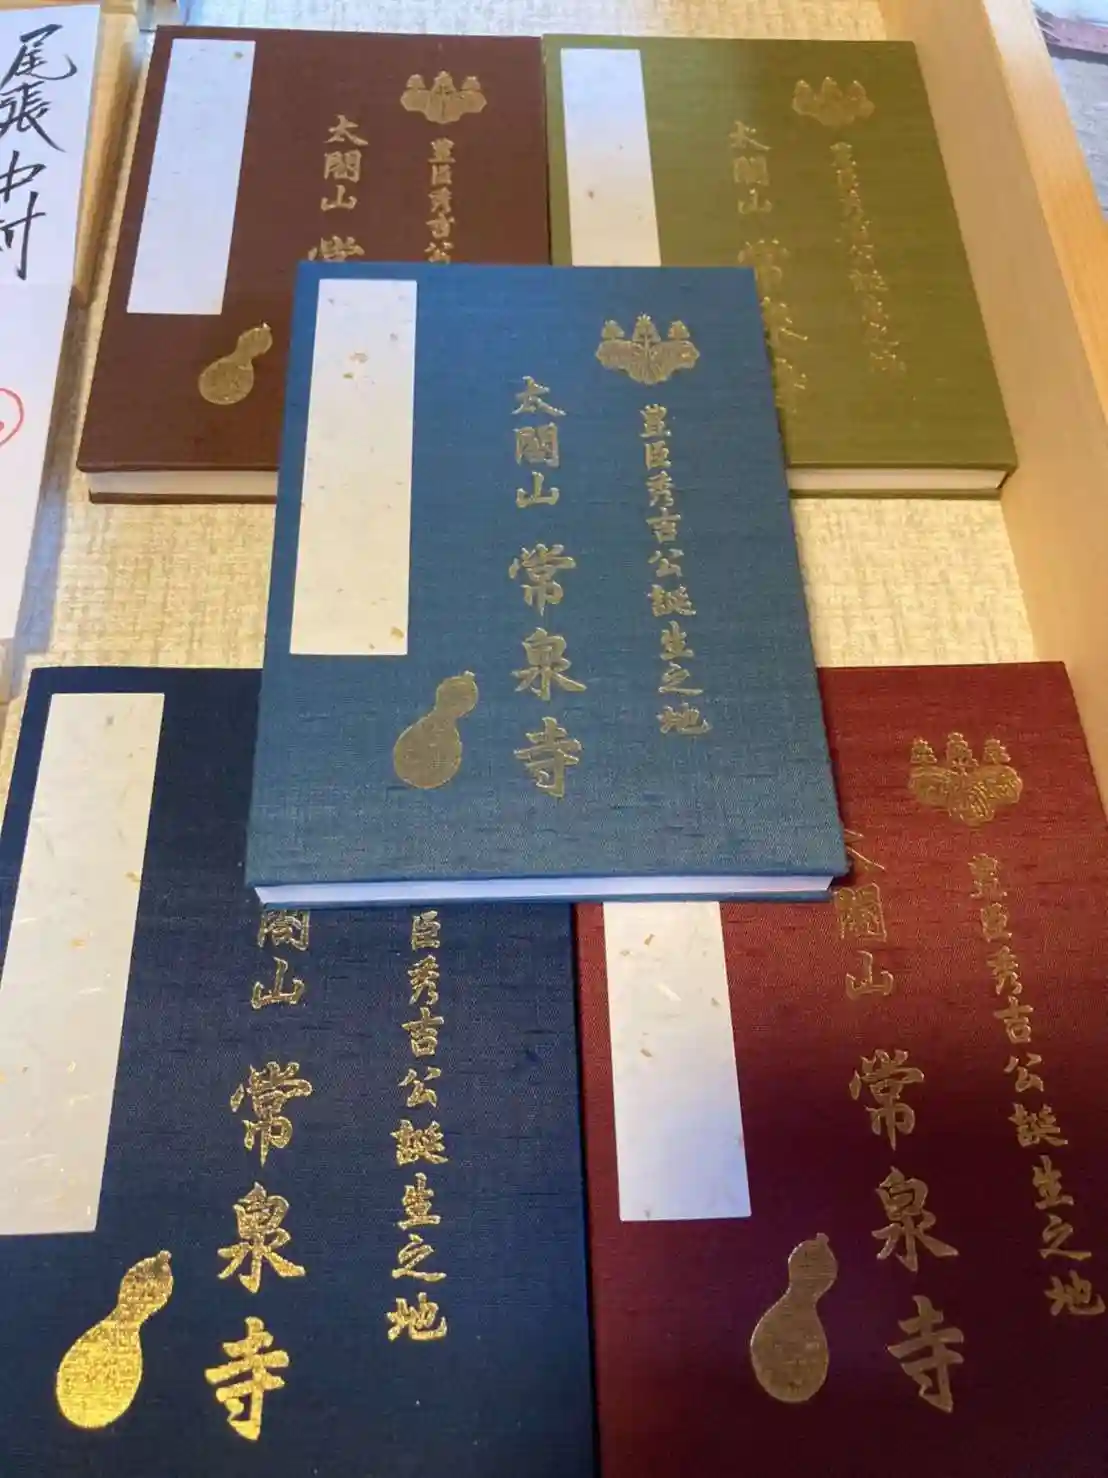 尾張中村
太閤山 常
豊臣秀吉公
太閤山 常泉寺
豊臣秀吉公誕生之地
豊臣秀吉公誕生之地
太閤山 常泉寺
閤山 常泉寺
臣秀吉公誕生之地
豊臣秀吉公誕生之地
太閤山 常泉寺